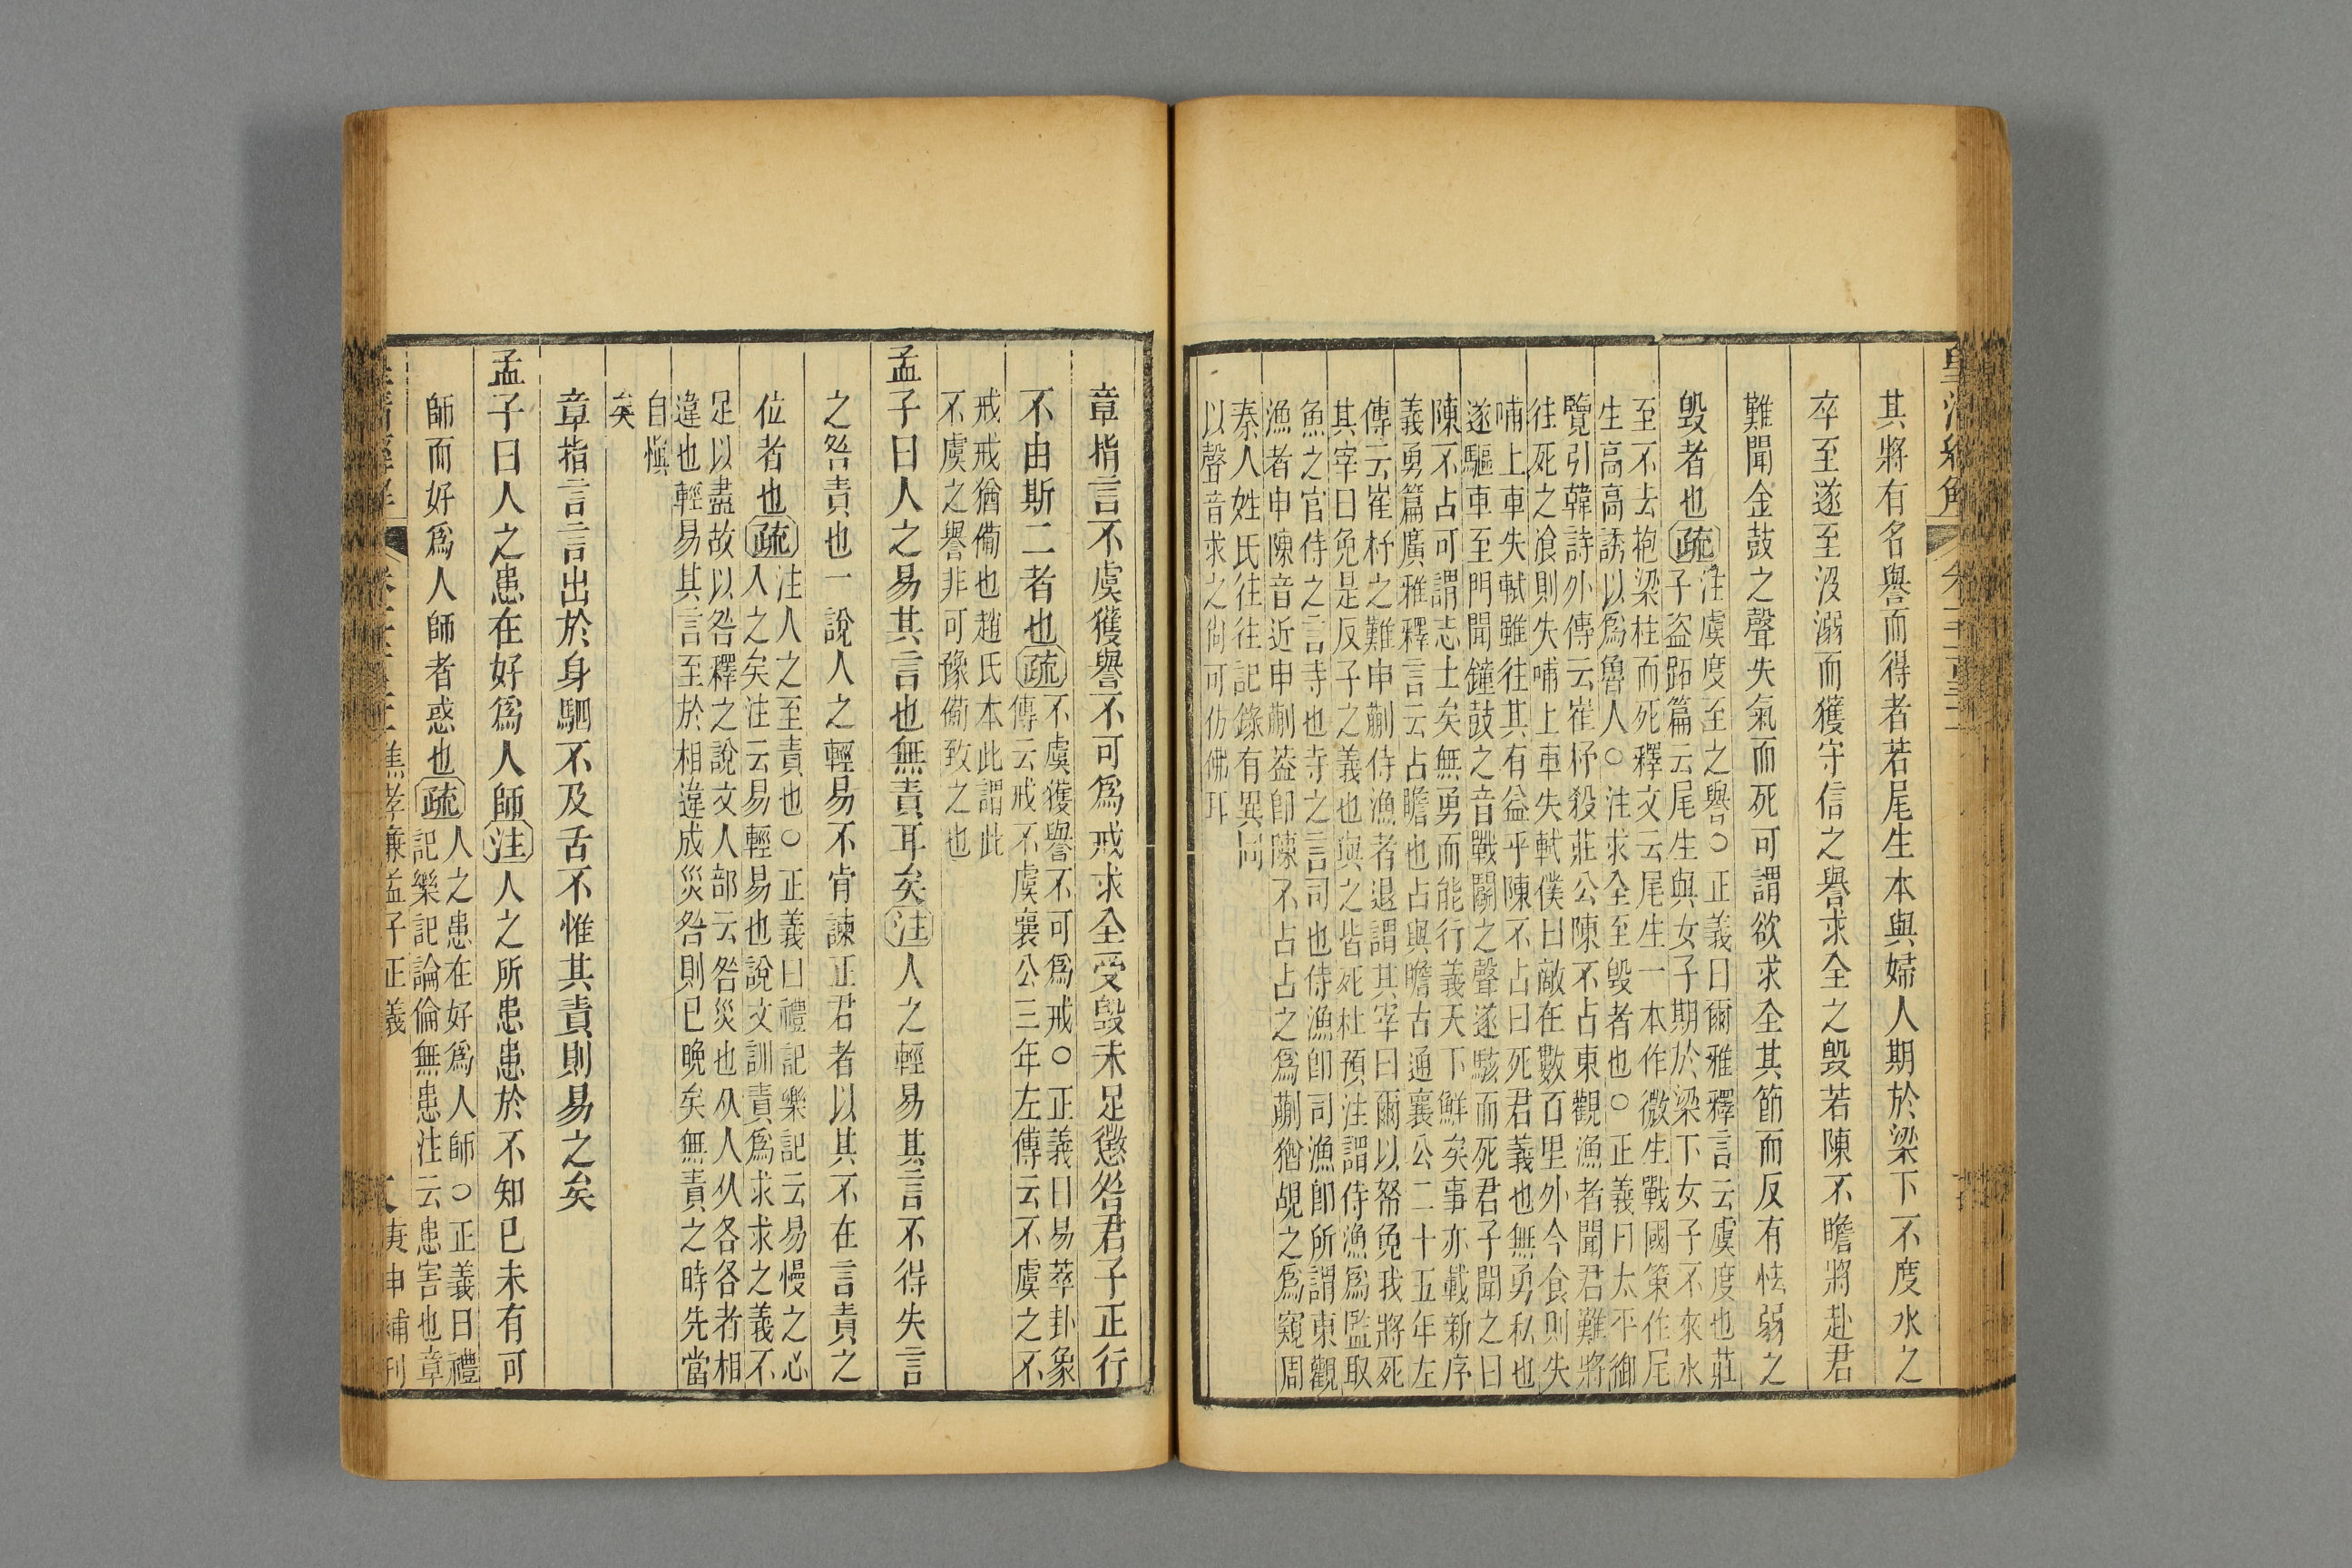 皇清經解
其將有名譽而得者若尾生本與婦人期於梁下不度水之
卒至遂至沒溺而獲守信之譽求全之毀若陳不瞻將赴君
難聞金鼓之聲失氣而死可謂欲求全其節而反有怯弱之
毀者也疏注虞度至之譽○正義曰爾雅釋言云虞度也莊
子盜跖篇云尾生與女子期於梁下女子不來水
至不去抱梁柱而死釋文云尾生一本作微生戰國策作尾
生高高誘以爲魯人○注求全至毀者也○正義曰太平御
覽引韓詩外傳云崔杼殺莊公陳不占東觀漁者聞君難將
往死之飡則失哺上車失軾僕曰敵在數百里外今食則失
哺上車失軾雖往其有益乎陳不占曰死君義也無勇私也
遂驅車至門聞鐘鼓之音戰鬭之聲遂駭而死君子聞之曰
陳不占可謂志士矣無勇而能行義天下鮮矣事亦載新序
義勇篇廣雅釋言云占瞻也占與瞻古通襄公二十五年左
傳云崔杼之難申蒯侍漁者退謂其宰曰爾以帑免我將死
其宰曰免是反子之義也與之皆死杜預注謂侍漁爲監取
魚之官侍之言寺也寺之言司也侍漁卽司漁卽所謂東觀
漁者申陳音近申蒯葢卽陳不占占之爲蒯猶覘之爲窺周
秦人姓氏往往記錄有異同
以聲音求之尙可仿佛耳
章指言不虞獲譽不可爲戒求全受毀未足懲咎君子正行
不由斯二者也疏不虞獲譽不可爲戒○正義曰易萃卦象
傳云戒不虞襄公三年左傳云不虞之不
戒戒猶備也趙氏本此謂此
不虞之譽非可豫備致之也
孟子曰人之易其言也無責耳矣注人之輕易其言不得失言
之咎責也一說人之輕易不肯諫正君者以其不在言責之
位者也疏注人之至責也○正義曰禮記樂記云易慢之心
入之矣注云易輕易也說文訓責爲求求之義不
足以盡故以咎釋之說文人部云咎災也从人从各各者相
違也輕易其言至於相違成災咎則已晚矣無責之時先當
自愼
矣
章指言言出於身駟不及舌不惟其責則易之矣
孟子曰人之患在好爲人師注人之所患患於不知已未有可
師而好爲人師者惑也疏人之患在好爲人師○正義曰禮
記樂記論倫無患注云患害也章
皇清經解
焦孝廉孟子正義
庚申補刊